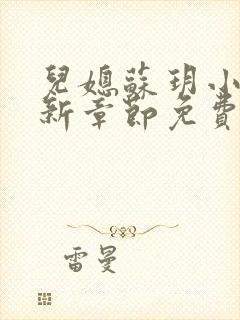 兒媳蘇玥小
新章節免費
雷曼